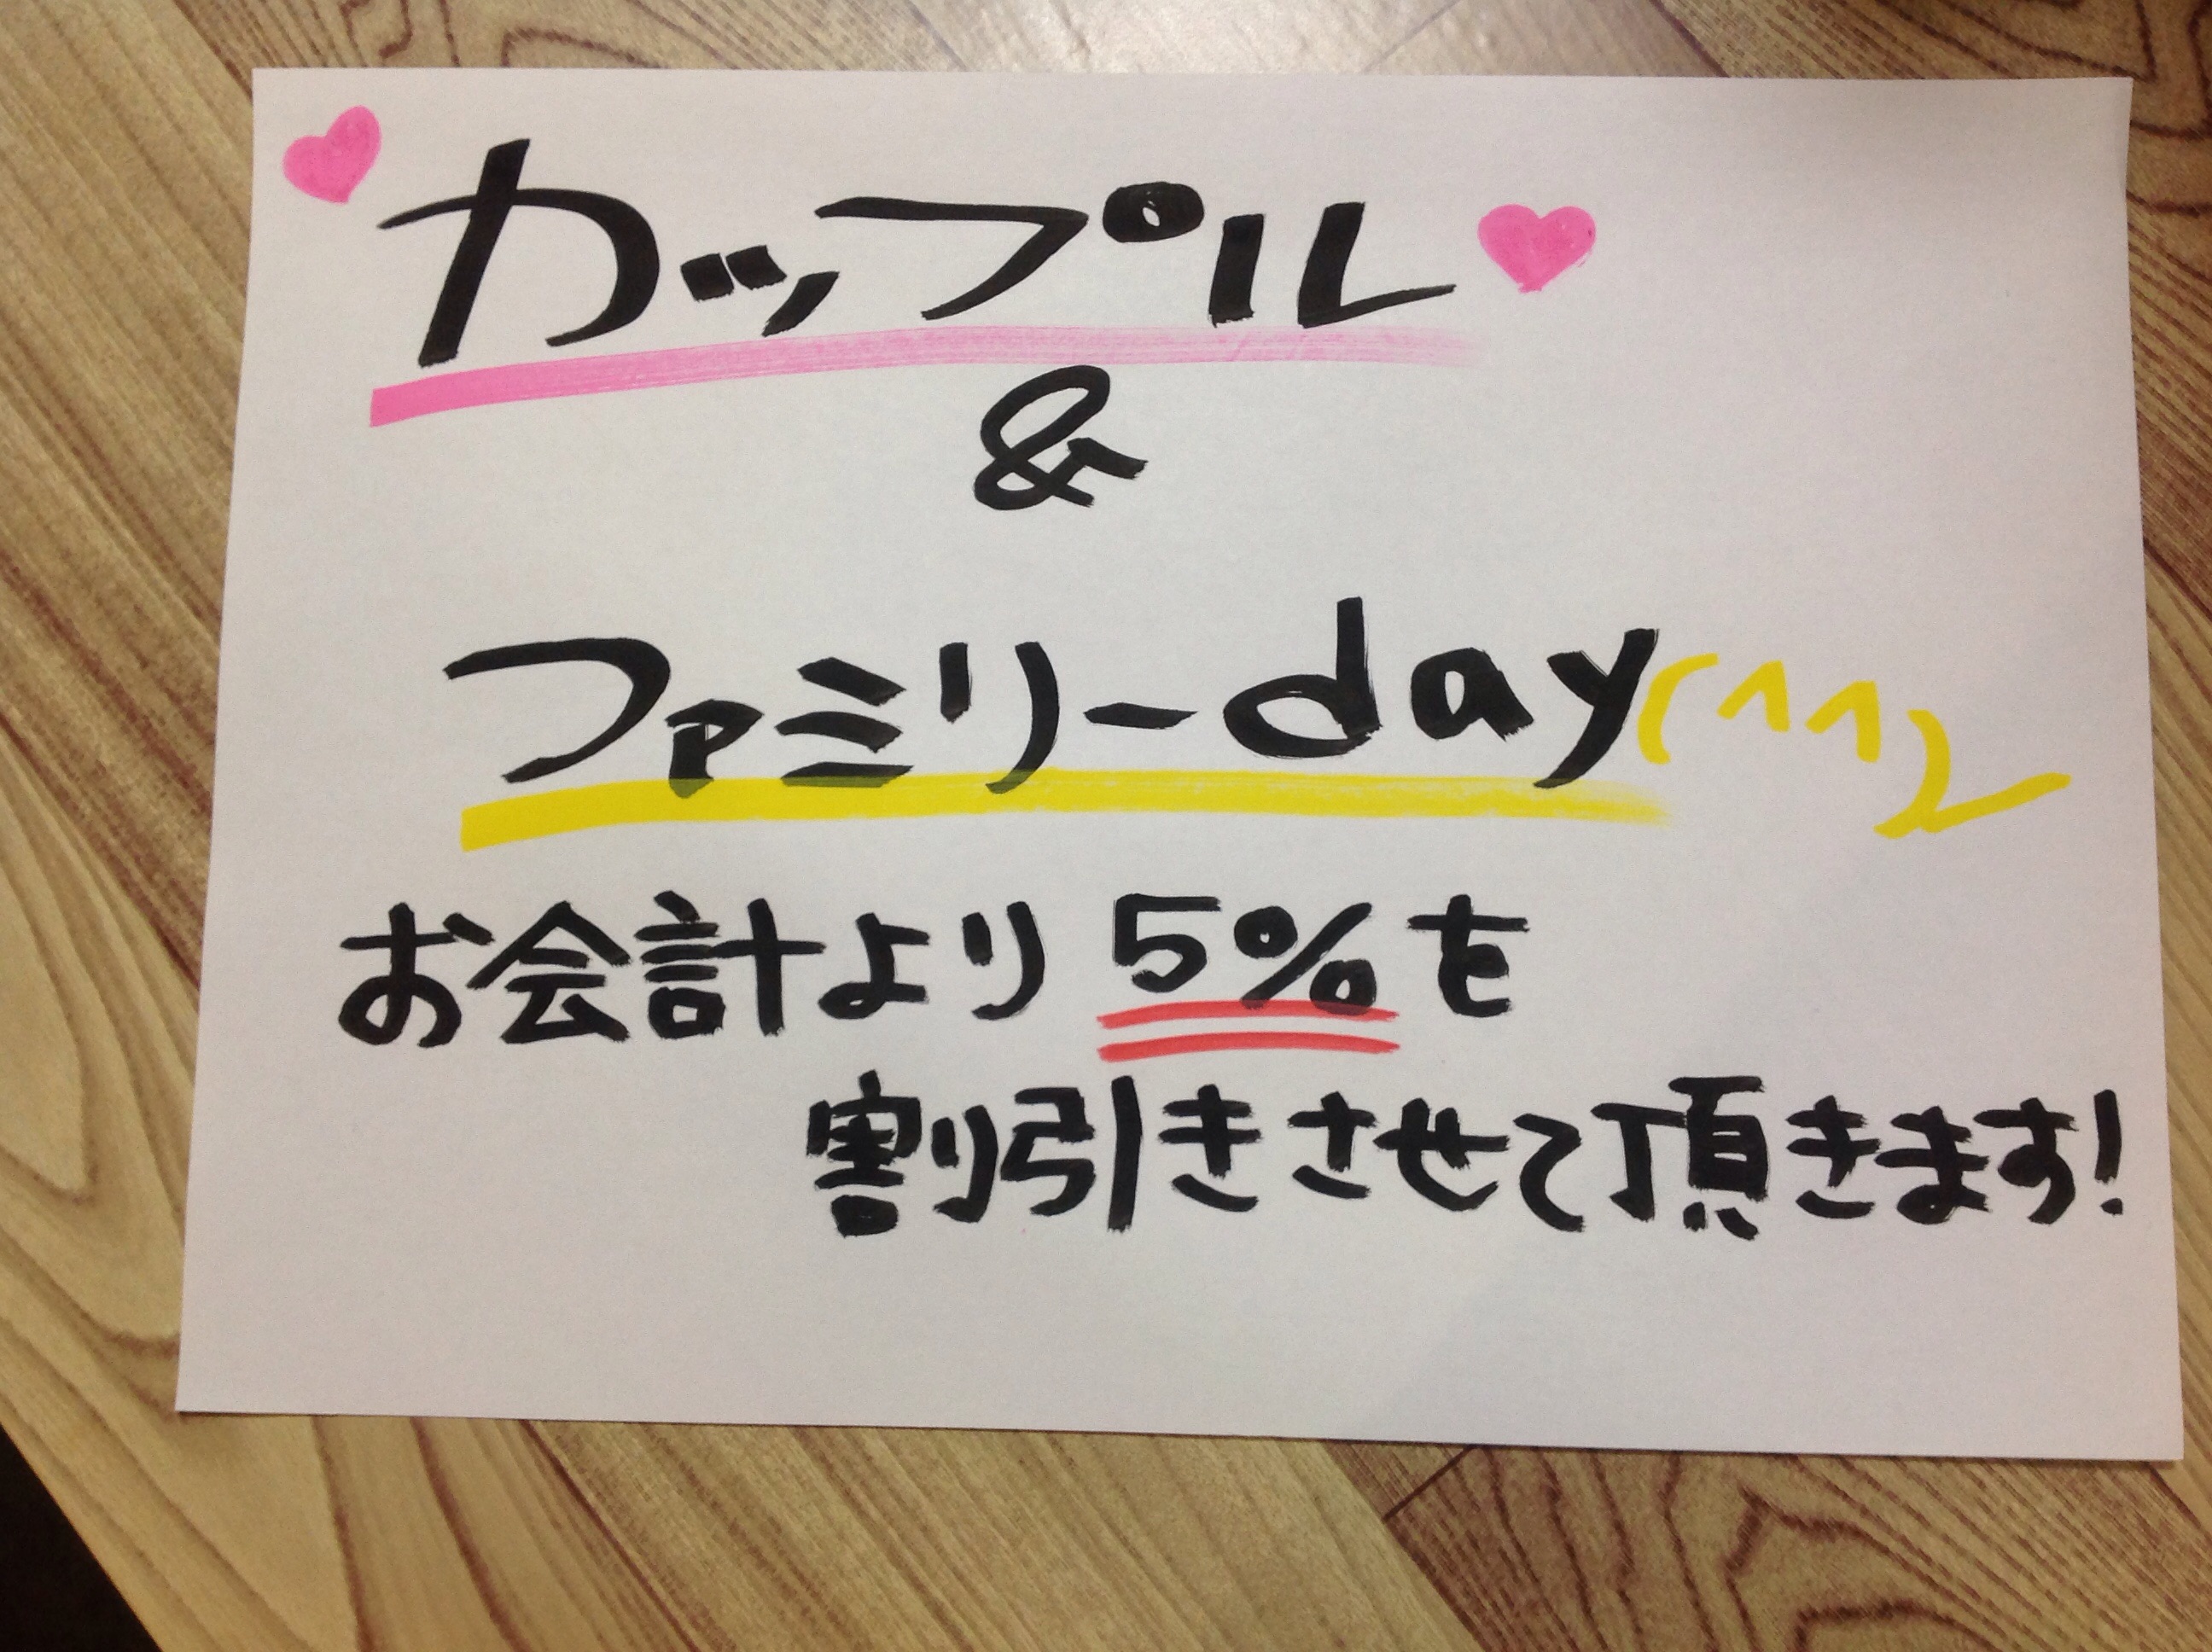 カップル
&
ファミリーday(^^)
お会計より5%を
割引きさせて頂きます!